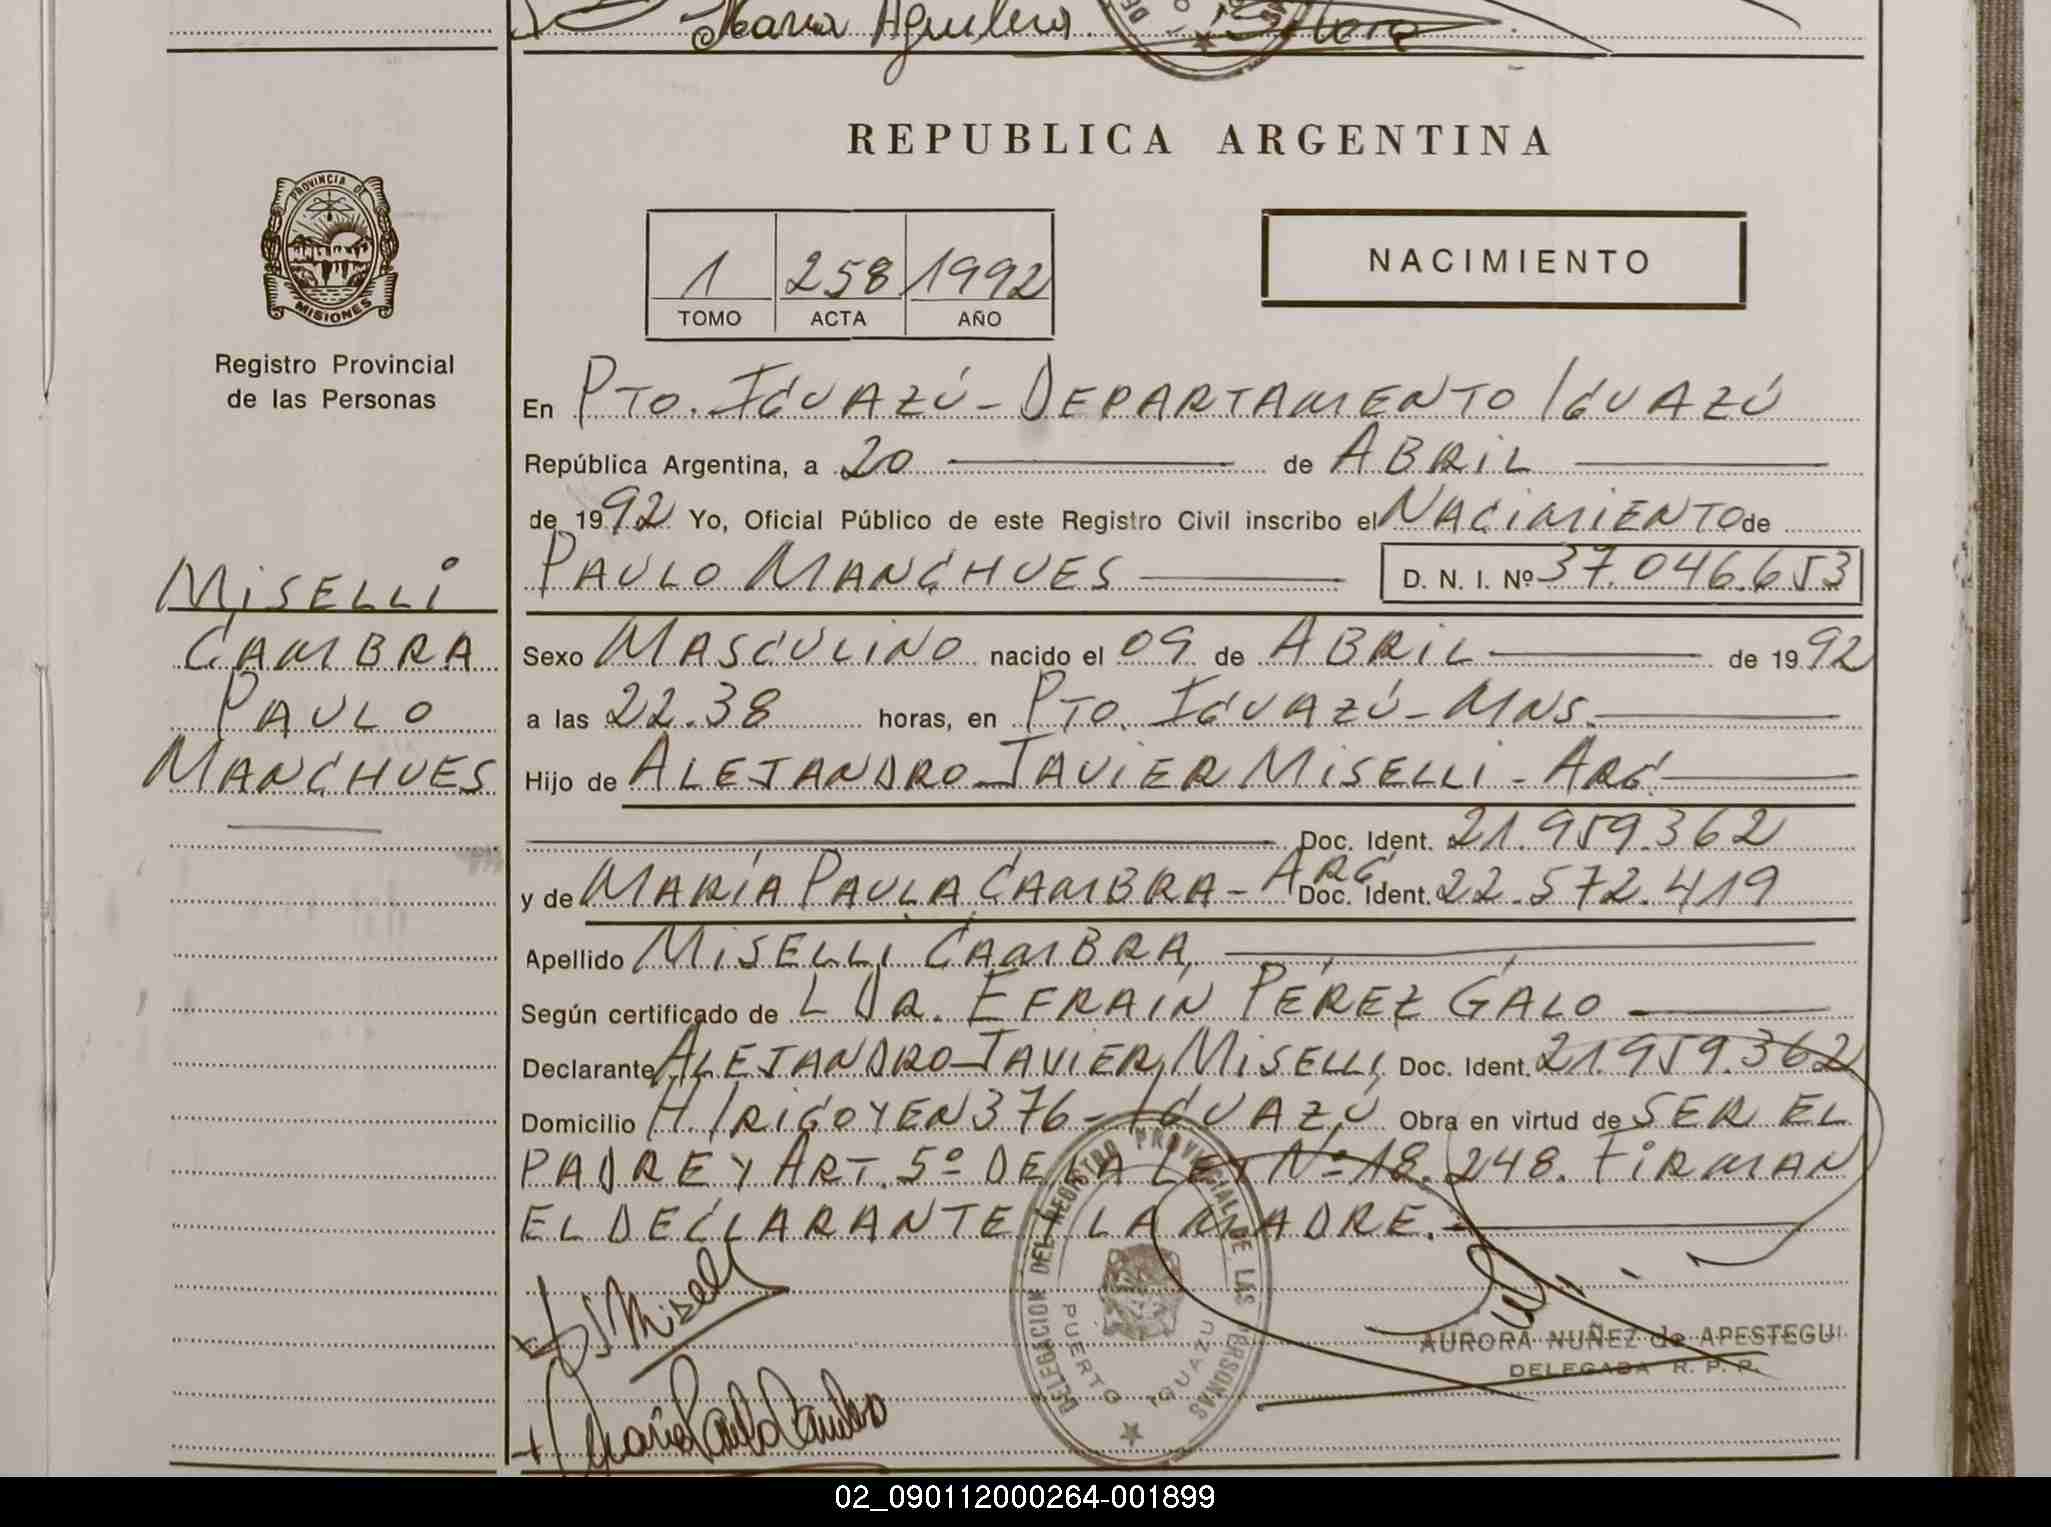 Maria Aguilera
REPUBLICA ARGENTINA
PROVINCIA DE
MISIONES
Registro Provincial
de las Personas
1 258 1992
TOMO ACTA AÑO
NACIMIENTO
En PTO. IGUAZÚ - DEPARTAMENTO IGUAZÚ
República Argentina, a 20 de ABRIL
de 1992 Yo, Oficial Público de este Registro Civil inscribo el NACIMIENTO de
PAULO MANGHUES D. N. I. Nº 37.046.653
MISELLI
CAMBRA
PAULO
MANGHUES
Sexo MASCULINO nacido el 09 de ABRIL de 1992
a las 22.38 horas, en PTO. IGUAZÚ - MNS.
Hijo de ALEJANDRO JAVIER MISELLI - ARG.
Doc. Ident. 21.959.362
y de MARÍA PAULA CAMBRA - ARG. Doc. Ident. 22.572.419
Apellido MISELLI CAMBRA
Según certificado de L DR. EFRAÍN PÉREZ GALO
Declarante ALEJANDRO JAVIER MISELLI Doc. Ident. 21.959.362
Domicilio H. IRIGOYEN 376 - IGUAZÚ Obra en virtud de SER EL
PADRE Y ART. 5º DE LA LEY Nº 18.248. FIRMAN
EL DECLARANTE Y LA MADRE.-
Miselli
María Paula Cambra
DELEGACION DEL REGISTRO PROVINCIAL DE LAS PERSONAS
PUERTO IGUAZU
AURORA NUÑEZ de APESTEGUI
DELEGADA R. P. P.
02_090112000264-001899